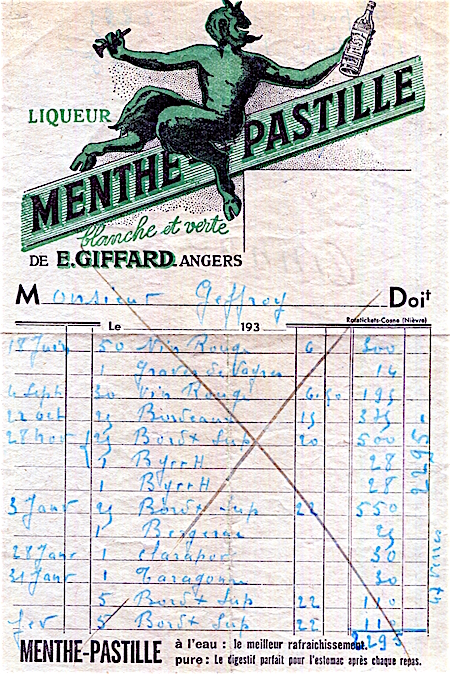 LIQUEUR
MENTHE-PASTILLE
blanche et verte
DE E.GIFFARD. ANGERS
Monsieur Geffroy Doit
Rotatichets-Cosne (Nièvre)
Le 193
18 Juin 50 Vin Rouge 6 300
1 Graves de Vayres 14
4 Sept 30 Vin Rouge 6.50 195
22 Oct 25 Bordeaux 15 375
28 Nov 25 Bordx Sup 20 500
1 ByrrH 28
1 ByrrH 28
3 Janv 25 Bordx Sup 22 550
1 Bergerac 25
28 Janv 1 30
31 Janv 1 30
5 Bordx Sup 22 110
Fev 5 Bordx Sup 22 110
2295
2295
MENTHE-PASTILLE à l'eau : le meilleur rafraichissement.
pure : Le digestif parfait pour l'estomac après chaque repas.